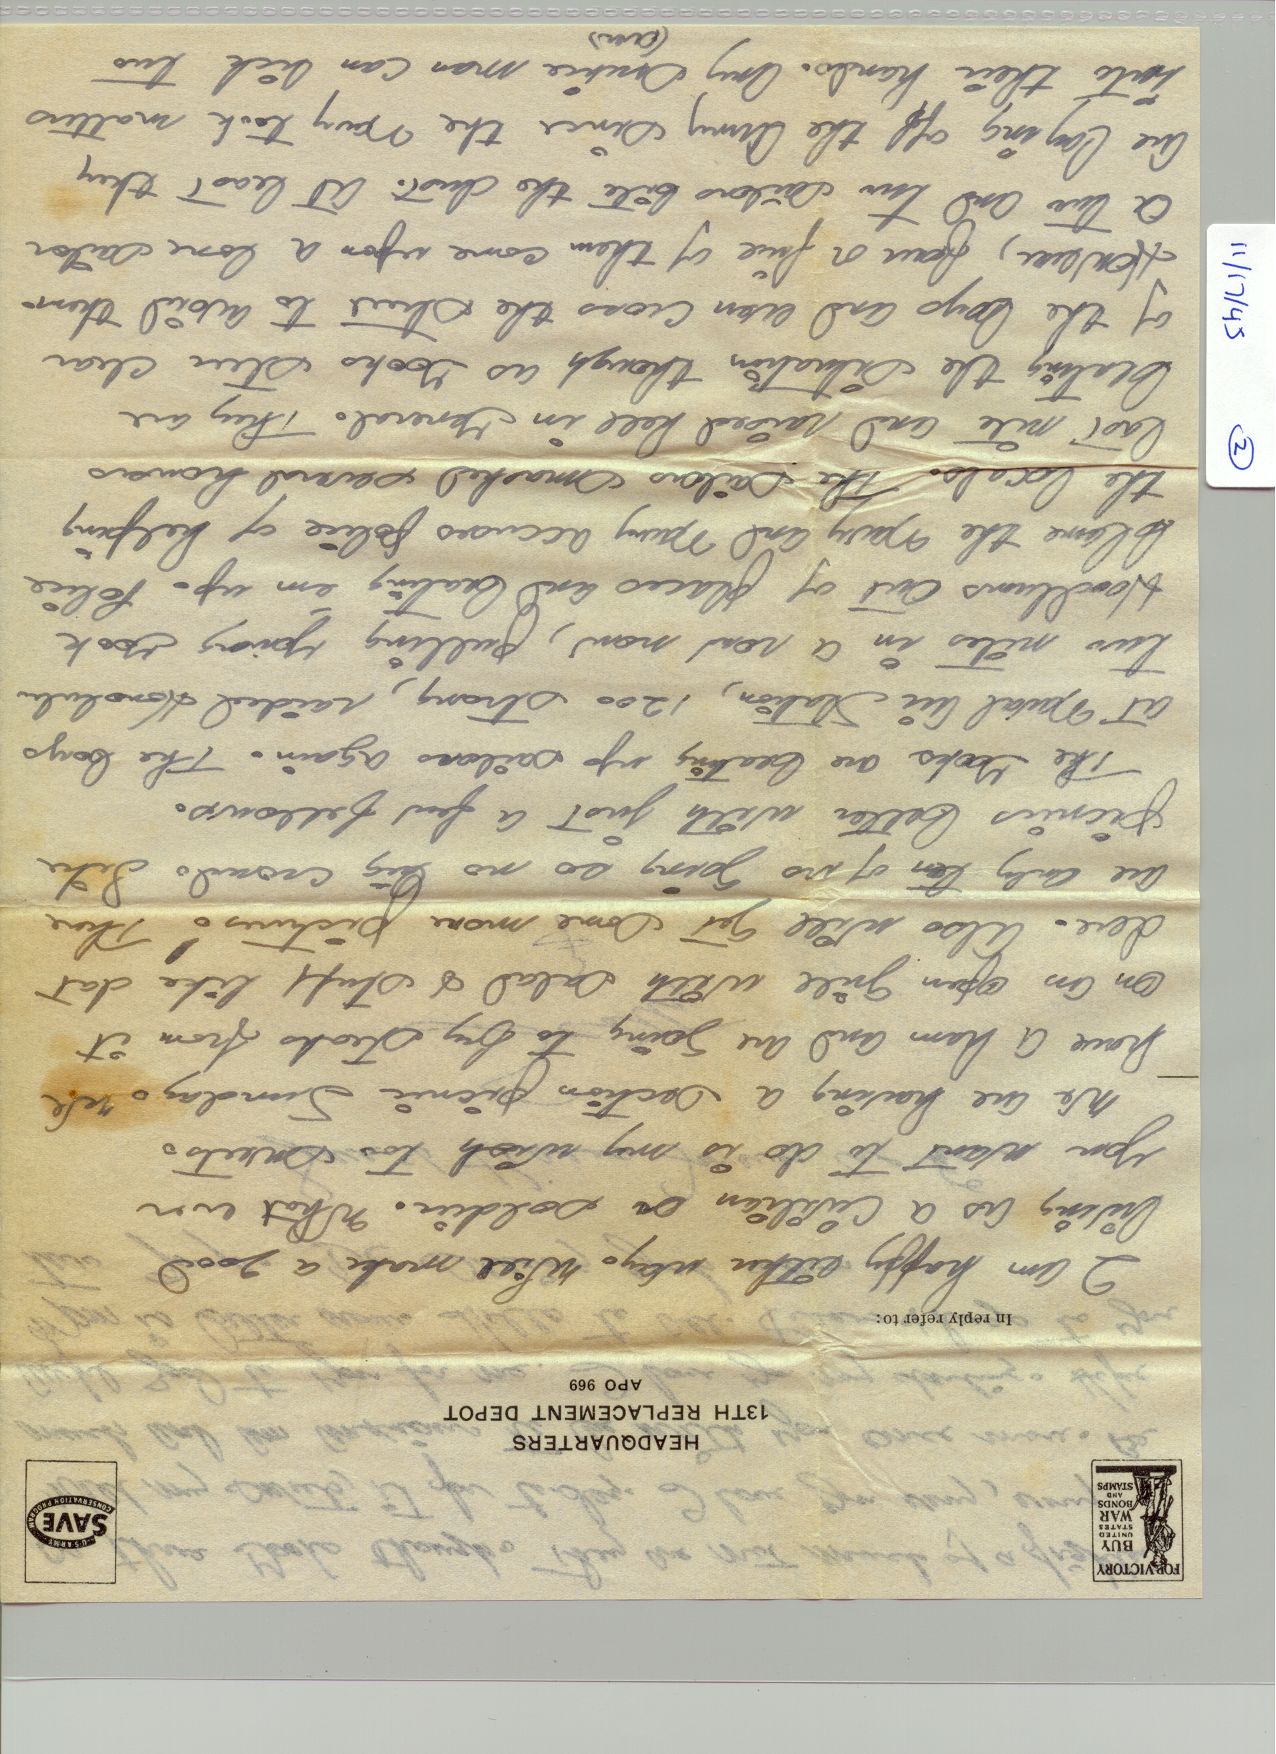 FOR VICTORY
BUY
UNITED
STATES
WAR
BONDS
AND
STAMPS
HEADQUARTERS
13TH REPLACEMENT DEPOT
APO 969
U.S. ARMY
SAVE
CONSERVATION PROGRAM
In reply refer to:
I am happy either way. Will make a good
living as a civilian or soldier. What ever
you want to do is my wish too sweets.
We are having a section picnic Sunday. We
have a ham and are going to fry steaks from it
on an open grill with salad & stuff like dat
dere. Also will get some more pictures. There
are only ten of us going so no big crowd. Like
picnics better with just a few fellows.
The Gooks are beating up sailors again. The boys
at Naval Air Station, 1200 strong, raided Honolulu
two nites in a row now, pulling young Gook
Hoodlums out of places and beating em up. Police
blame the Navy and Navy accuses police of helping
the locals. The sailors smacked several homes
last nite and raised hell in general. They are
beating the situation though as Gooks steer clear
of the boys and even cross the street to avoid them.
However, four or five of them come upon a lone sailor
or two and two sailors bite the dust. At least they
are laying off the Army since the Navy took matters
into their hands. Any service man can lick two
(over)
11/17/45
2